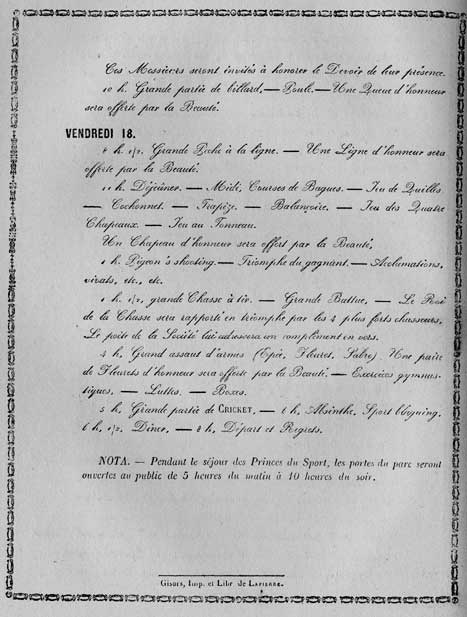 Ces Messieurs seront invités à honorer le Devoir de leur présence.
10 h. Grande partie de billard. — Poule. — Une Queue d'honneur
sera offerte par la Beauté.
VENDREDI 18.
8 h. 1/2. Grande Pêche à la ligne. — Une Ligne d'honneur sera
offerte par la Beauté.
11 h. Déjeûner. — Midi, Courses de Bagues. — Jeu de Quilles.
— Cochonnet. — Trapèze. — Balançoire. — Jeu des Quatre
Chapeaux. — Jeu au Tonneau.
Un Chapeau d'honneur sera offert par la Beauté,
1 h. Pigeon's shooting. — Triomphe du gagnant. — Acclamations,
vivats, etc., etc.
1 h. 1/2, grande Chasse à tir. — Grande Battue, — Le Roi
de la Chasse sera rapporté en triomphe par les 4 plus forts chasseurs.
Le poète de la Société lui adressera un compliment en vers.
4 h. Grand assaut d'armes (Epée, Fleuret, Sabre). Une paire
de Fleurets d'honneur sera offerte par la Beauté. — Exercices gymnas-
tiques. — Luttes. — Boxes.
5 h. Grande partie de CRICKET, — 6 h. Absinthe, Sport bloguing.
6 h. 1/2. Dîner, — 8 h. Départ et Regrets.
NOTA. — Pendant le séjour des Princes du Sport, les portes du parc seront
ouvertes au public de 5 heures du matin à 10 heures du soir.
Gisors, Imp. et Libr. de Lapierre.